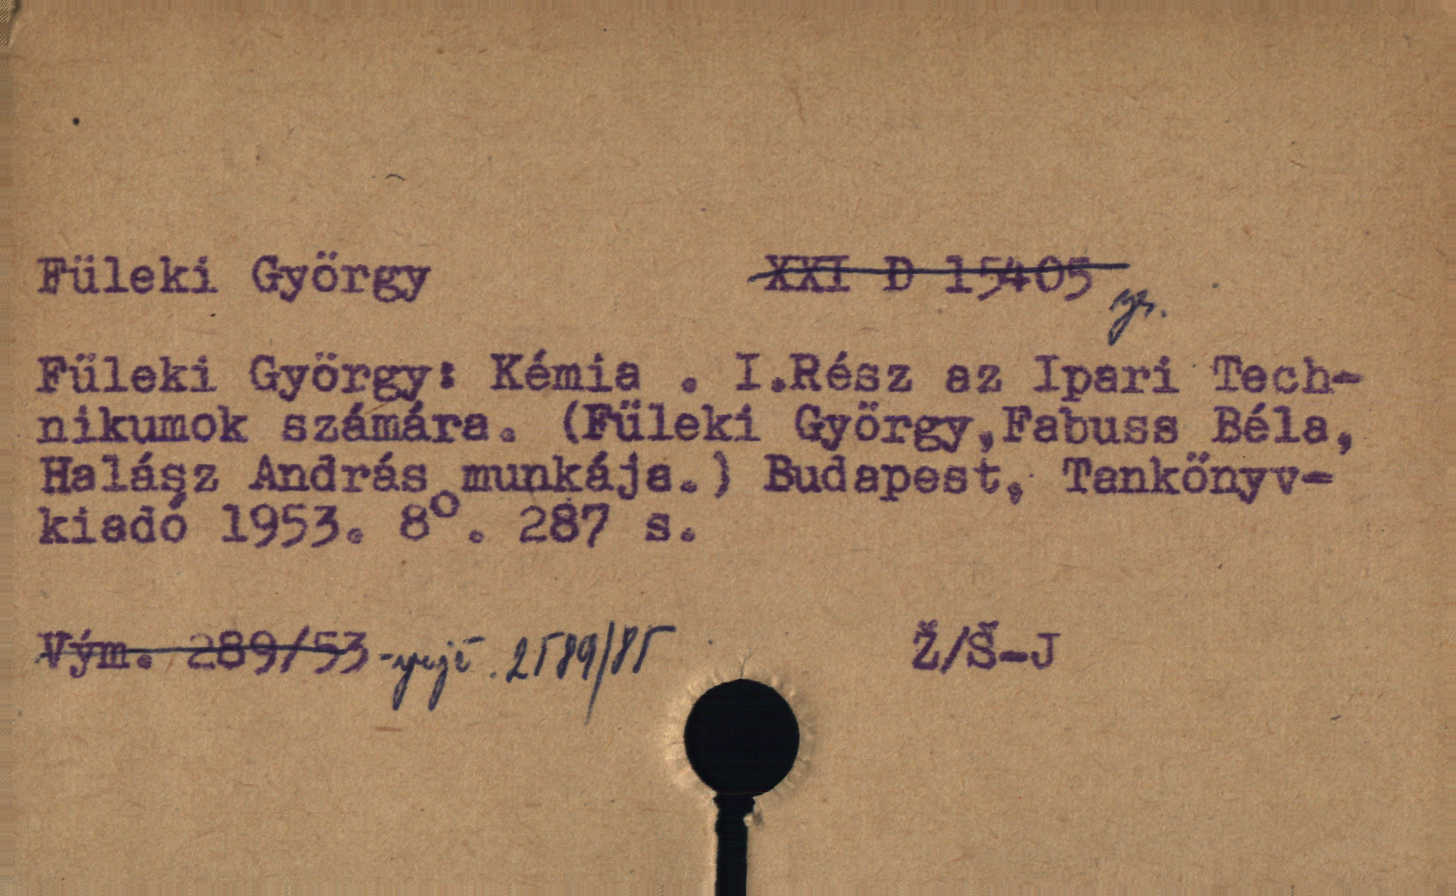 Füleki György XXI D 15405
Füleki György: Kémia . I.Rész az Ipari Tech-
nikumok számára. (Füleki György,Fabuss Béla,
Halász András munkája.) Budapest, Tankönyv-
kiadó 1953. 8°. 287 s.
Vým. 289/53 2589/85 Ž/Š-J